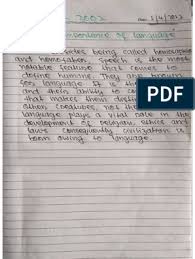 2002
5/4/2022
Importance of language
besides being called homosapien
and homofaber, speech is the most
notable feature that comes to
define humans. They are known
for language. It is the
and their ability to con
that makes them distin
other creatures not the
language plays a vital role in the
development of religion, ethics and
laws consequently civilization is
been owing to language.
PDF